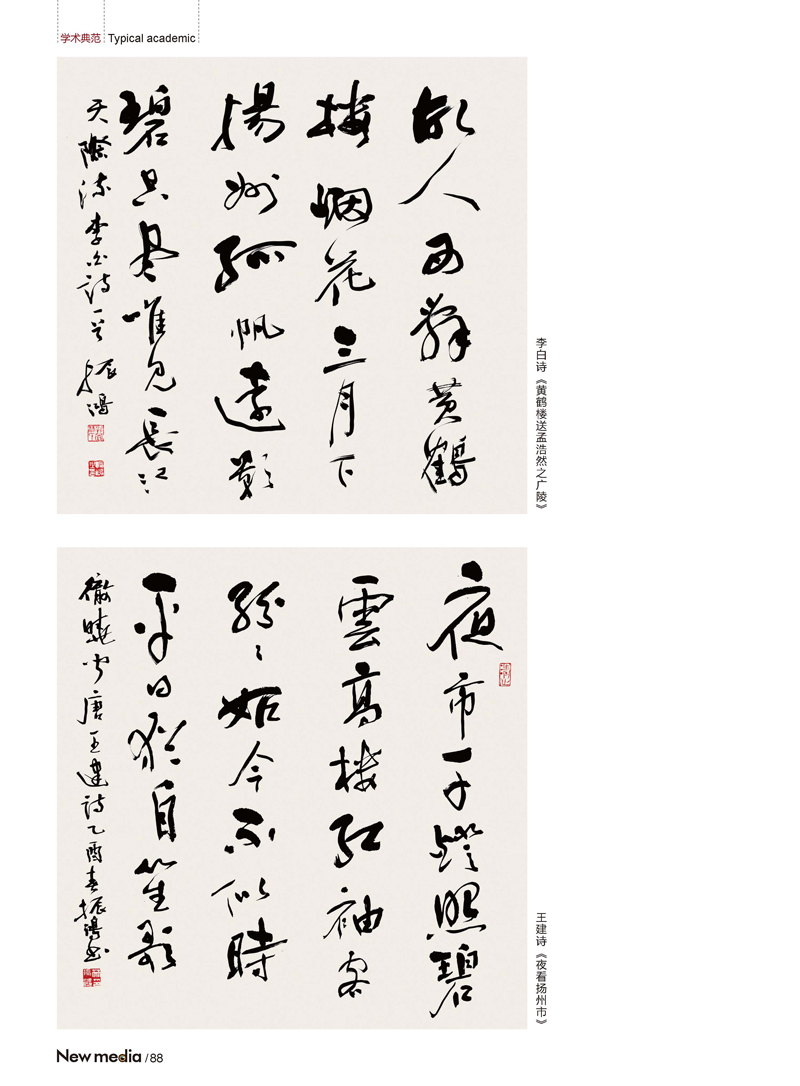 学术典范 Typical academic
故人西辭黄鶴
樓烟花三月下
揚州孤帆遠影
碧空尽唯見長江
天際流李白詩一首振鴻
李白诗《黄鹤楼送孟浩然之广陵》
夜市千燈照碧
雲高樓紅袖客
紛〻如今不似時
平日猶自笙歌
徹曉聞唐王建詩乙酉春振鴻书
王建诗《夜看扬州市》
New media / 88